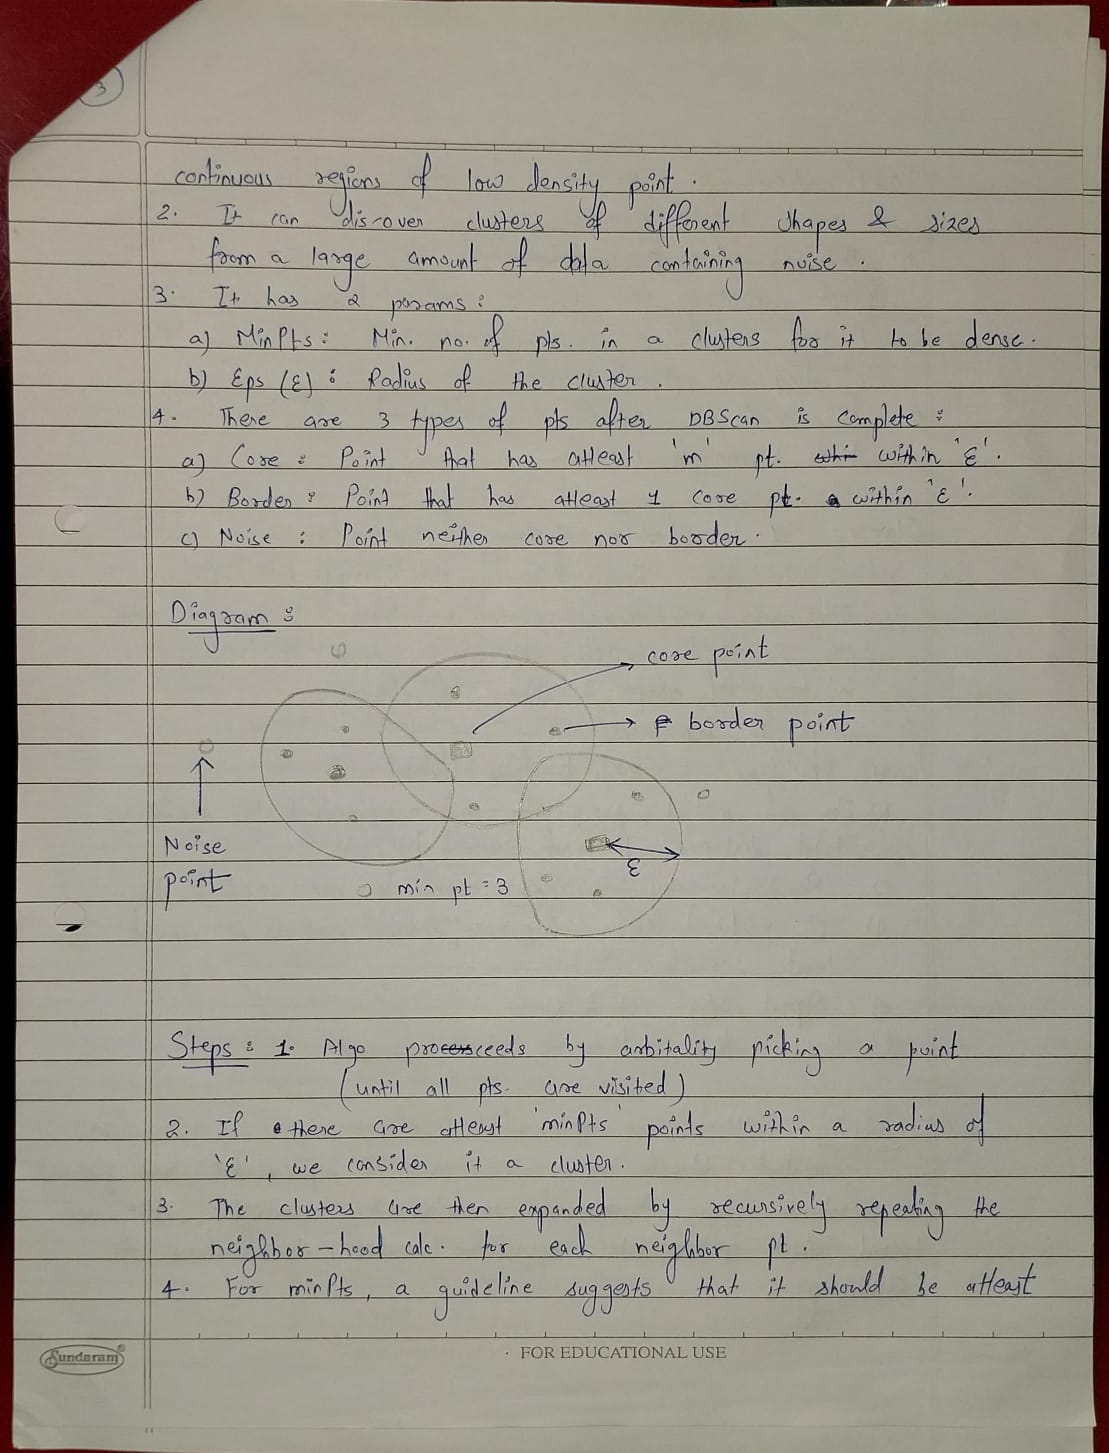 3
continuous regions of low density point.
2. It can discover clusters of different shapes & sizes
from a large amount of data containing noise.
3. It has 2 params:
a) MinPts: Min. no. of pts. in a clusters for it to be dense.
b) Eps (ε): Radius of the cluster.
4. There are 3 types of pts after DBScan is complete:
a) Core: Point that has atleast 'm' pt. within 'ε'.
b) Border: Point that has atleast 1 core pt. within 'ε'.
c) Noise: Point neither core nor boorder.
Diagram:
core point
border point
Noise
point
ε
min pt = 3
Steps: 1. Algo proceeds by arbitality picking a point
(until all pts. are visited)
2. If there are atleast 'minPts' points within a radius of
'ε', we consider it a cluster.
3. The clusters are then expanded by recursively repeating the
neighbor-hood calc. for each neighbor pt.
4. For minPts, a guideline suggests that it should be atleast
Sundaram
FOR EDUCATIONAL USE